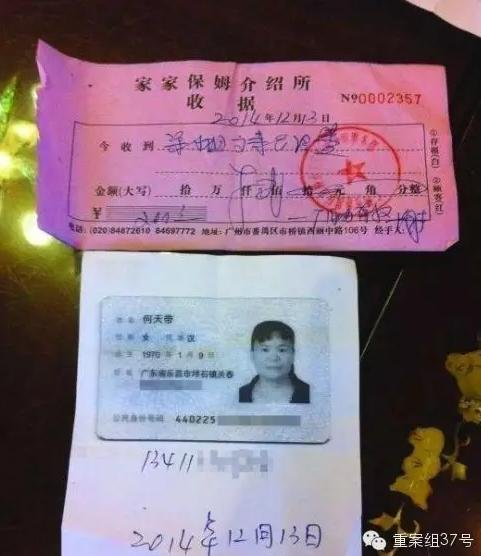 家家保姆介绍所
收 据
№0002357
2014年12月13日
今收到
金额(大写) 拾 万 仟 佰 拾 元 角 分整
¥
①存根(白) ②顾客(红)
电话:(020)84872610 84697772 地址:广州市番禺区市桥镇西丽中路106号 经手人:
姓名 何天带
性别 女 民族 汉
出生 1970年1月9日
住址 广东省乐昌市坪石镇关春
公民身份号码 440225
13411
2014年12月13日
重案组37号